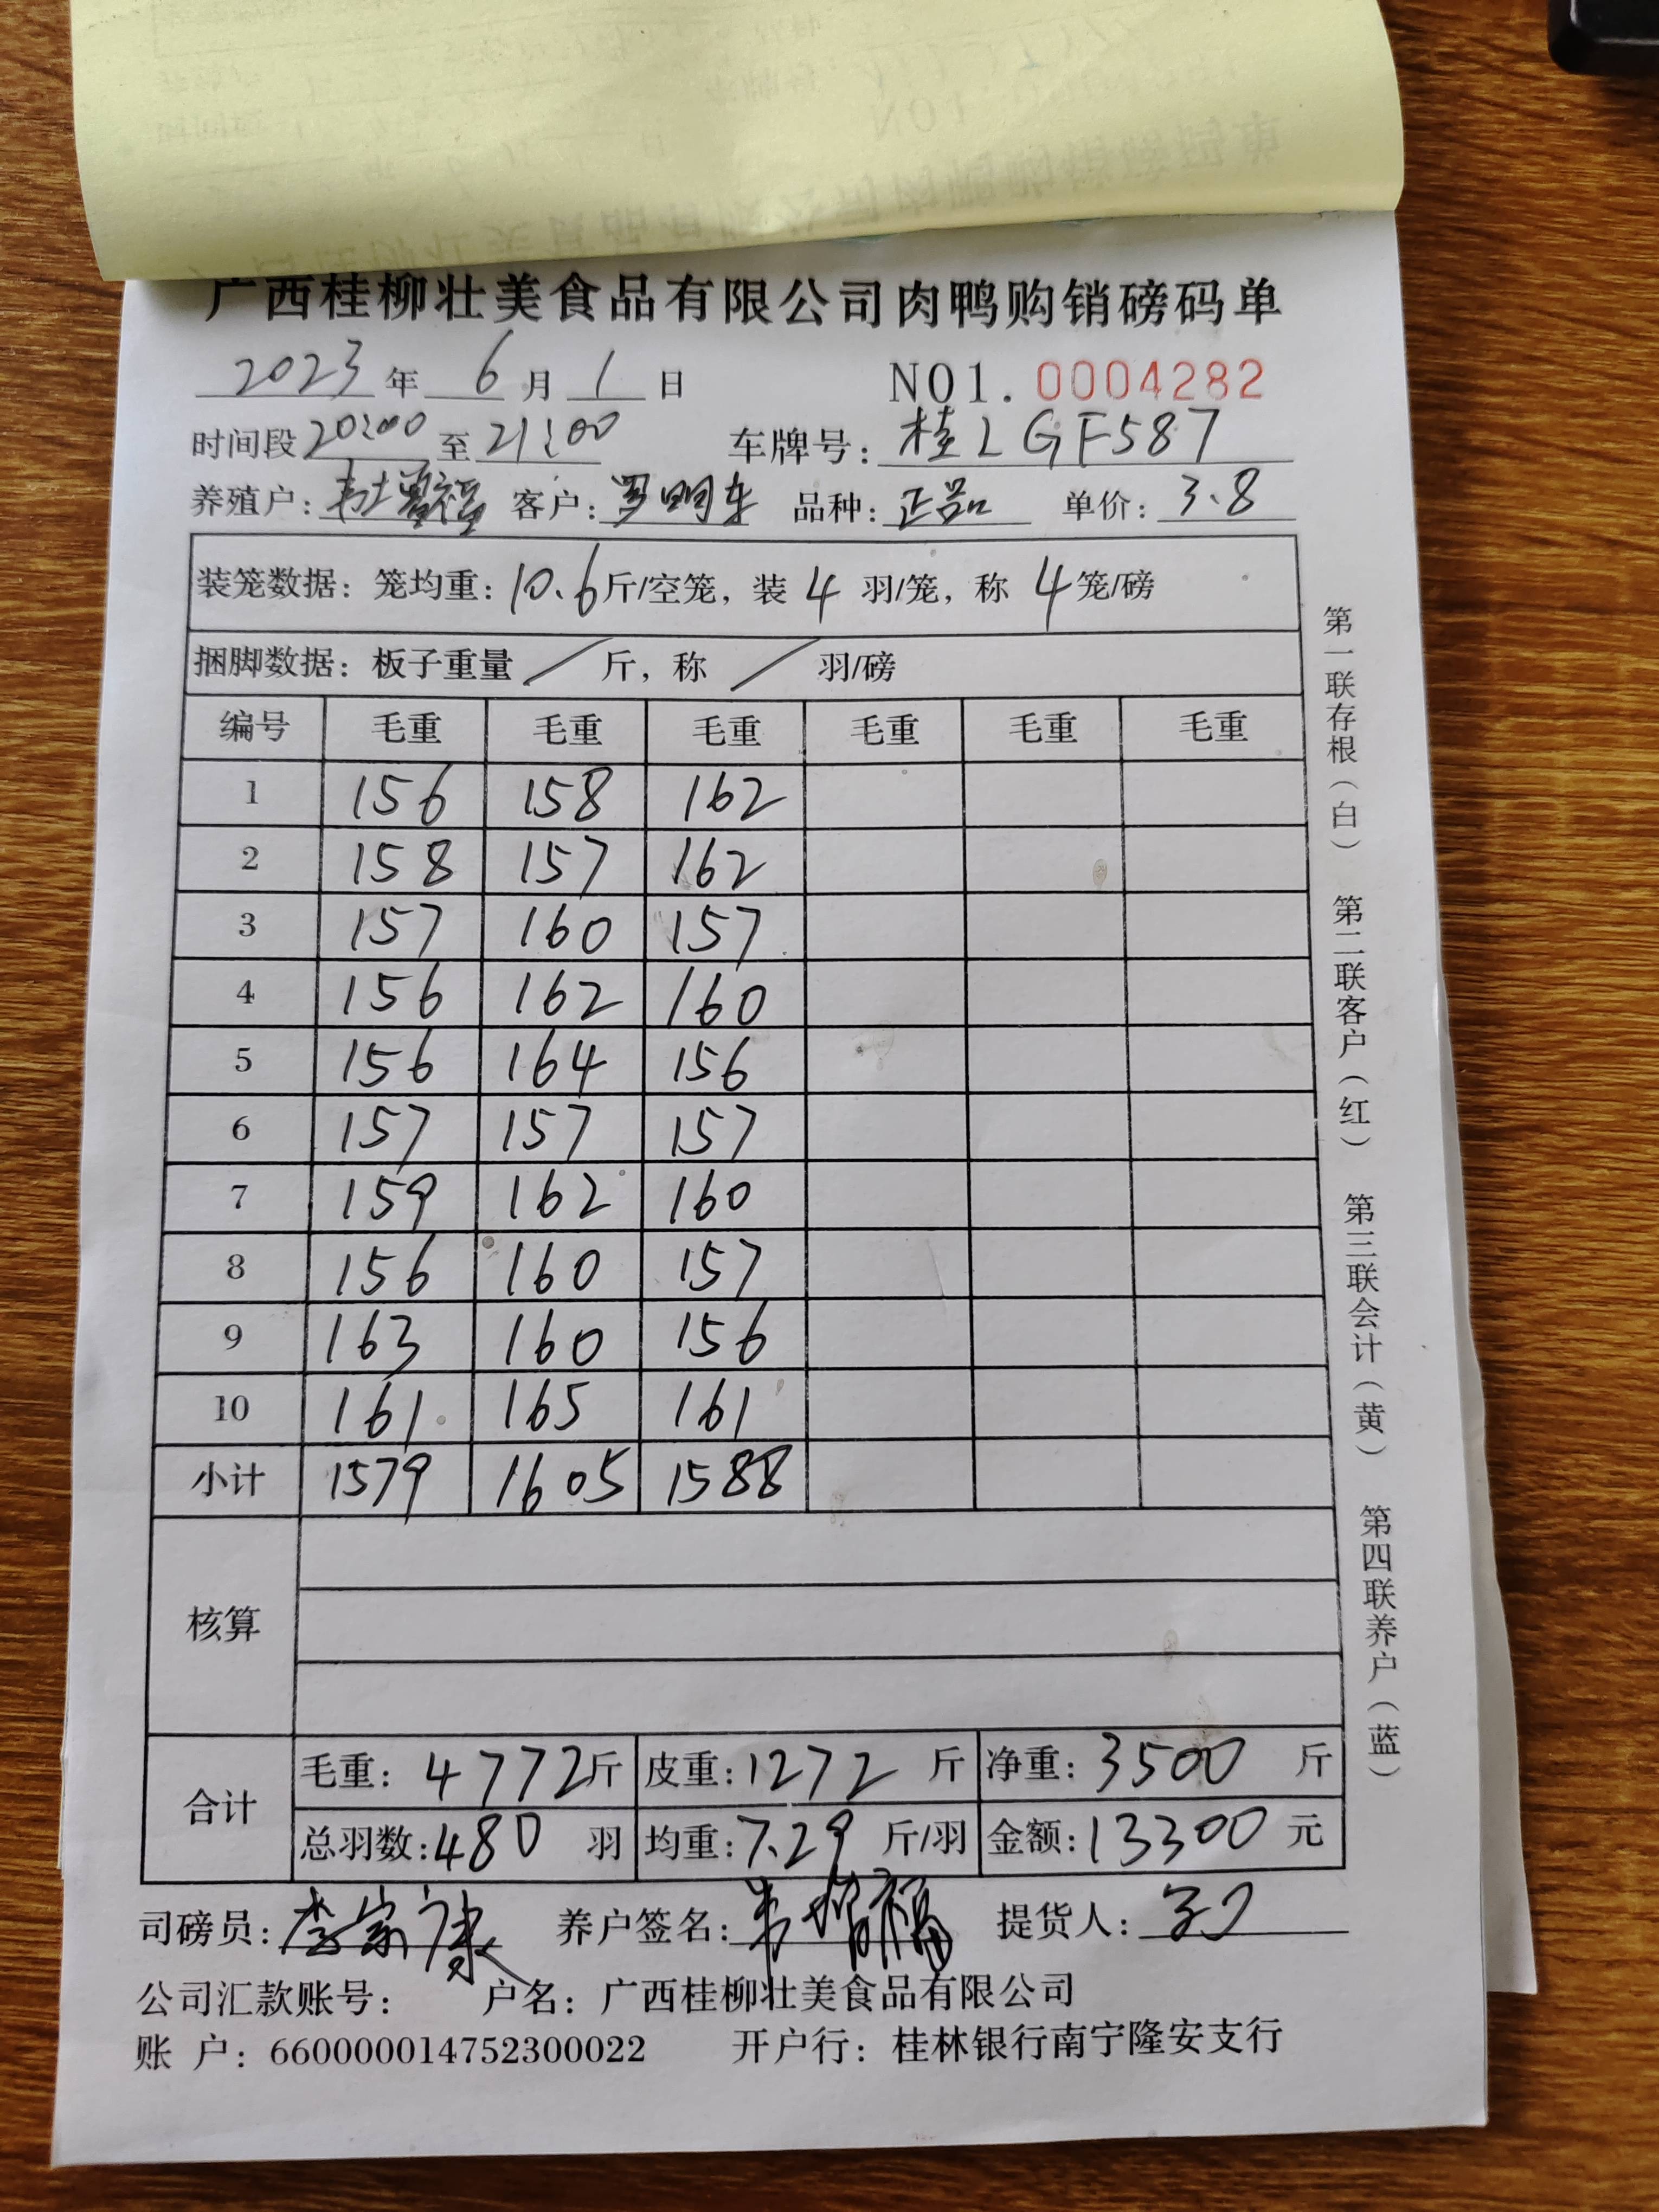 广西桂柳壮美食品有限公司肉鸭购销磅码单
2023 年 6 月 1 日 NO1. 0004282
时间段 20:00 至 21:00 车牌号: 桂L GF587
养殖户: 客户: 罗明东 品种: 正品 单价: 3.8
装笼数据: 笼均重: 10.6 斤/空笼, 装 4 羽/笼, 称 4 笼/磅
捆脚数据: 板子重量 / 斤, 称 / 羽/磅
编号 毛重 毛重 毛重 毛重 毛重 毛重
1 156 158 162
2 158 157 162
3 157 160 157
4 156 162 160
5 156 164 156
6 157 157 157
7 159 162 160
8 156 160 157
9 163 160 156
10 161 165 161
小计 1579 1605 1588
核算
合计
毛重: 4772 斤 皮重: 1272 斤 净重: 3500 斤
总羽数: 480 羽 均重: 7.29 斤/羽 金额: 13300 元
司磅员: 李家康 养户签名: 提货人:
公司汇款账号: 户名: 广西桂柳壮美食品有限公司
账 户: 660000014752300022 开户行: 桂林银行南宁隆安支行
第一联存根(白) 第二联客户(红) 第三联会计(黄) 第四联养户(蓝)